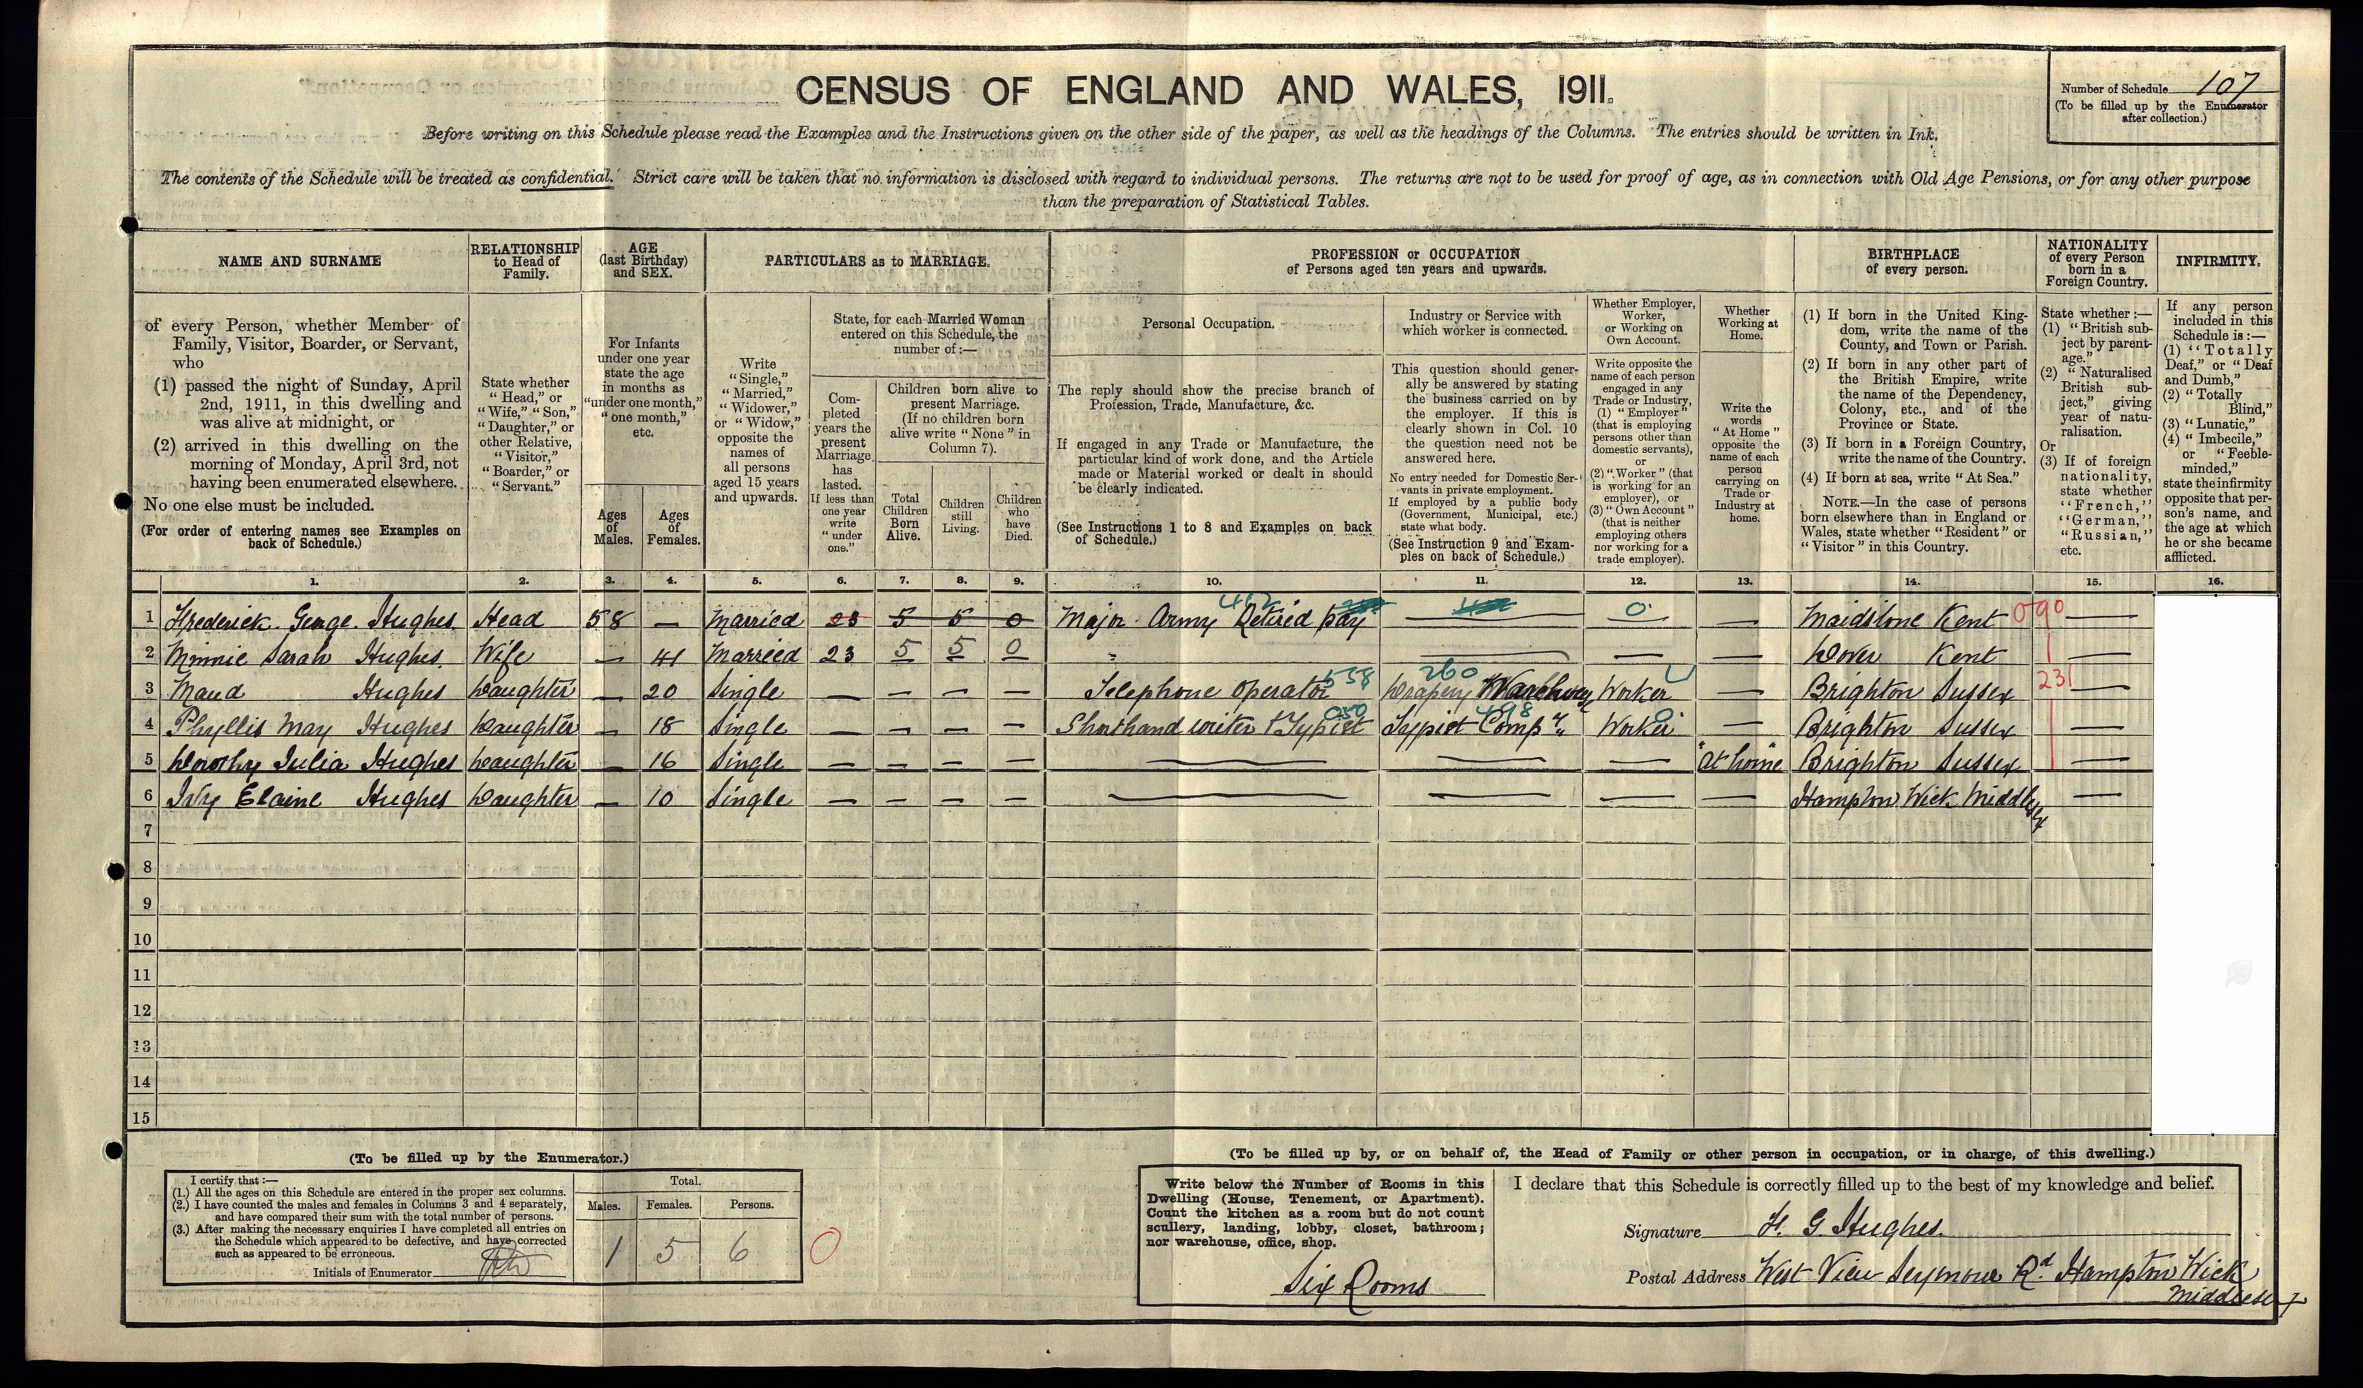 CENSUS OF ENGLAND AND WALES, 1911.
Number of Schedule 107
(To be filled up by the Enumerator
after collection.)
Before writing on this Schedule please read the Examples and the Instructions given on the other side of the paper, as well as the headings of the Columns. The entries should be written in Ink.
The contents of the Schedule will be treated as confidential. Strict care will be taken that no information is disclosed with regard to individual persons. The returns are not to be used for proof of age, as in connection with Old Age Pensions, or for any other purpose
than the preparation of Statistical Tables.
NAME AND SURNAME
RELATIONSHIP
to Head of
Family.
AGE
(last Birthday)
and SEX.
PARTICULARS as to MARRIAGE.
PROFESSION or OCCUPATION
of Persons aged ten years and upwards.
BIRTHPLACE
of every person.
NATIONALITY
of every Person
born in a
Foreign Country.
INFIRMITY.
of every Person, whether Member of
Family, Visitor, Boarder, or Servant,
who
(1) passed the night of Sunday, April
2nd, 1911, in this dwelling and
was alive at midnight, or
(2) arrived in this dwelling on the
morning of Monday, April 3rd, not
having been enumerated elsewhere.
No one else must be included.
(For order of entering names see Examples on
back of Schedule.)
State whether
"Head," or
"Wife," "Son,"
"Daughter," or
other Relative,
"Visitor,"
"Boarder," or
"Servant."
For Infants
under one year
state the age
in months as
"under one month,"
"one month,"
etc.
Ages
of
Males.
Ages
of
Females.
Write
"Single,"
"Married,"
"Widower,"
or "Widow,"
opposite the
names of
all persons
aged 15 years
and upwards.
State, for each Married Woman
entered on this Schedule, the
number of:—
Com-
pleted
years the
present
Marriage
has
lasted.
If less than
one year
write
"under
one."
Children born alive to
present Marriage.
(If no children born
alive write "None" in
Column 7).
Total
Children
Born
Alive.
Children
still
Living.
Children
who
have
Died.
Personal Occupation.
The reply should show the precise branch of
Profession, Trade, Manufacture, &c.
If engaged in any Trade or Manufacture, the
particular kind of work done, and the Article
made or Material worked or dealt in should
be clearly indicated.
(See Instructions 1 to 8 and Examples on back
of Schedule.)
Industry or Service with
which worker is connected.
This question should gener-
ally be answered by stating
the business carried on by
the employer. If this is
clearly shown in Col. 10
the question need not be
answered here.
No entry needed for Domestic Ser-
vants in private employment.
If employed by a public body
(Government, Municipal, etc.)
state what body.
(See Instruction 9 and Exam-
ples on back of Schedule.)
Whether Employer,
Worker,
or Working on
Own Account.
Write opposite the
name of each person
engaged in any
Trade or Industry,
(1) "Employer"
(that is employing
persons other than
domestic servants),
or
(2) "Worker" (that
is working for an
employer), or
(3) "Own Account"
(that is neither
employing others
nor working for a
trade employer).
Whether
Working at
Home.
Write the
words
"At Home"
opposite the
name of each
person
carrying on
Trade or
Industry at
home.
(1) If born in the United King-
dom, write the name of the
County, and Town or Parish.
(2) If born in any other part of
the British Empire, write
the name of the Dependency,
Colony, etc., and of the
Province or State.
(3) If born in a Foreign Country,
write the name of the Country.
(4) If born at sea, write "At Sea."
NOTE.—In the case of persons
born elsewhere than in England or
Wales, state whether "Resident" or
"Visitor" in this Country.
State whether:—
(1) "British sub-
ject by parent-
age."
(2) "Naturalised
British sub-
ject," giving
year of natu-
ralisation.
Or
(3) If of foreign
nationality,
state whether
"French,"
"German,"
"Russian,"
etc.
If any person
included in this
Schedule is:—
(1) "Totally
Deaf," or "Deaf
and Dumb,"
(2) "Totally
Blind,"
(3) "Lunatic,"
(4) "Imbecile,"
or "Feeble-
minded,"
state the infirmity
opposite that per-
son's name, and
the age at which
he or she became
afflicted.
1. 2. 3. 4. 5. 6. 7. 8. 9. 10. 11. 12. 13. 14. 15. 16.
1 Frederick George Hughes Head 58 — Married 23 5 5 0 Major Army Retired pay 412 — 0 — Maidstone Kent 090 —
2 Minnie Sarah Hughes Wife — 41 Married 23 5 5 0 — — — Dover Kent —
3 Maud Hughes Daughter — 20 Single — — — — Telephone operator 558 Drapery Warehouse 260 Worker — Brighton Sussex 231 —
4 Phyllis May Hughes Daughter — 18 Single — — — — Shorthand writer & Typist 050 Typist Compy 498 Worker 0 — Brighton Sussex —
5 Dorothy Julia Hughes Daughter — 16 Single — — — — — — — "At home" Brighton Sussex —
6 Ivy Elaine Hughes Daughter — 10 Single — — — — — — — — Hampton Wick Middlesex —
7
8
9
10
11
12
13
14
15
(To be filled up by the Enumerator.)
I certify that:—
(1.) All the ages on this Schedule are entered in the proper sex columns.
(2.) I have counted the males and females in Columns 3 and 4 separately,
and have compared their sum with the total number of persons.
(3.) After making the necessary enquiries I have completed all entries on
the Schedule which appeared to be defective, and have corrected
such as appeared to be erroneous.
Initials of Enumerator
Total.
Males. Females. Persons.
1 5 6 0
(To be filled up by, or on behalf of, the Head of Family or other person in occupation, or in charge, of this dwelling.)
Write below the Number of Rooms in this
Dwelling (House, Tenement, or Apartment).
Count the kitchen as a room but do not count
scullery, landing, lobby, closet, bathroom;
nor warehouse, office, shop.
Six Rooms
I declare that this Schedule is correctly filled up to the best of my knowledge and belief.
Signature F. G. Hughes.
Postal Address West View Seymour Rd Hampton Wick
Middlesex